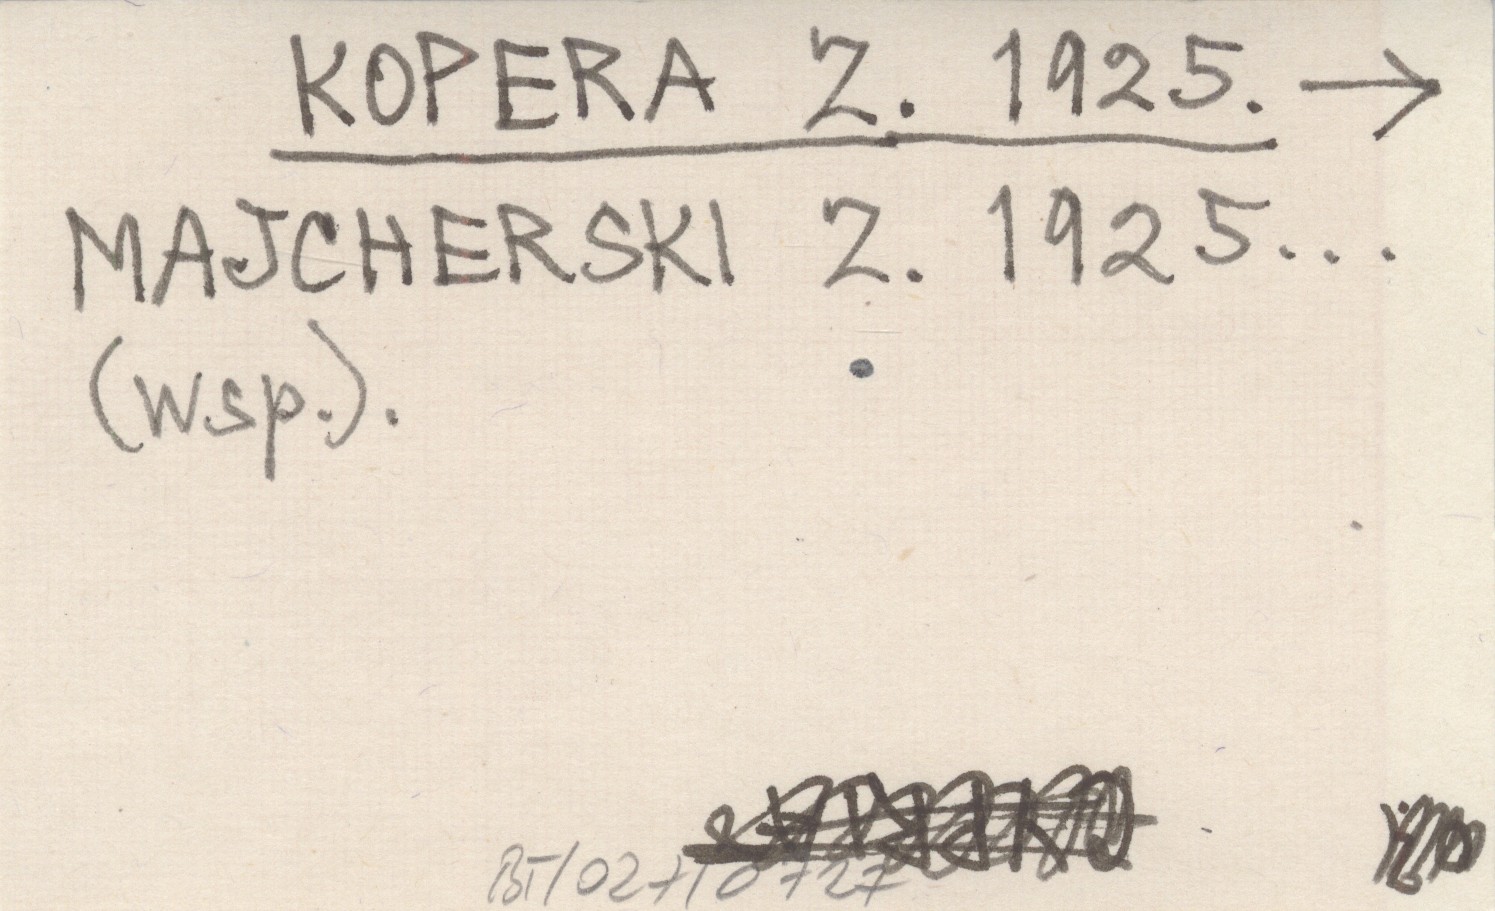 KOPERA Z. 1925. →
MAJCHERSKI Z. 1925...
(wsp.).
BT/027/10727